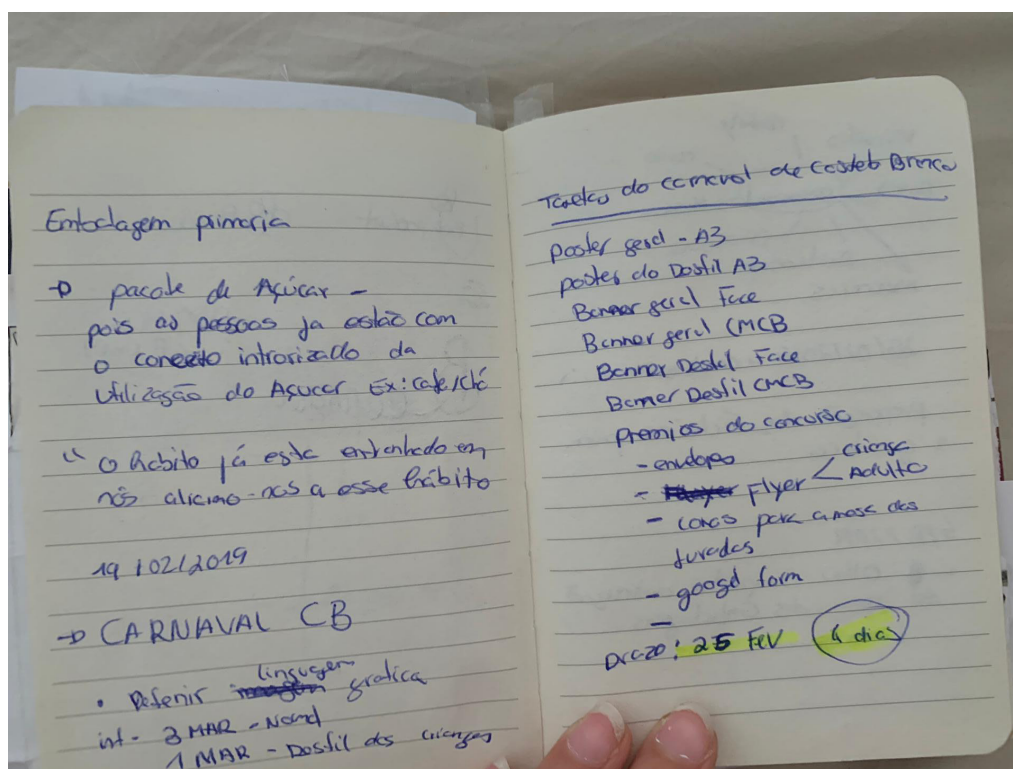 Embalagem primaria
→ pacote de Açúcar -
pois as pessoas ja estão com
o conceito introrizado da
Utilização do Açucar Ex: cafe/chá
" O hábito já esta entranhado em
nós aliamo-nos a esse hábito
19/02/2019
→ CARNAVAL CB
• Defenir linguagem grafica
int - 3 MAR -
1 MAR - Desfil das crianças
do carnaval de Castelo Branco
poster geral - A3
poster do Desfil A3
Banner geral Face
Banner geral CMCB
Banner Desfil Face
Banner Desfil CMCB
Premios do concurso
- envelopes
- Flyer < criança
Adulto
- para a mesa dos
Jurados
- googl form
-
Prazo: 25 FEV (4 dias)